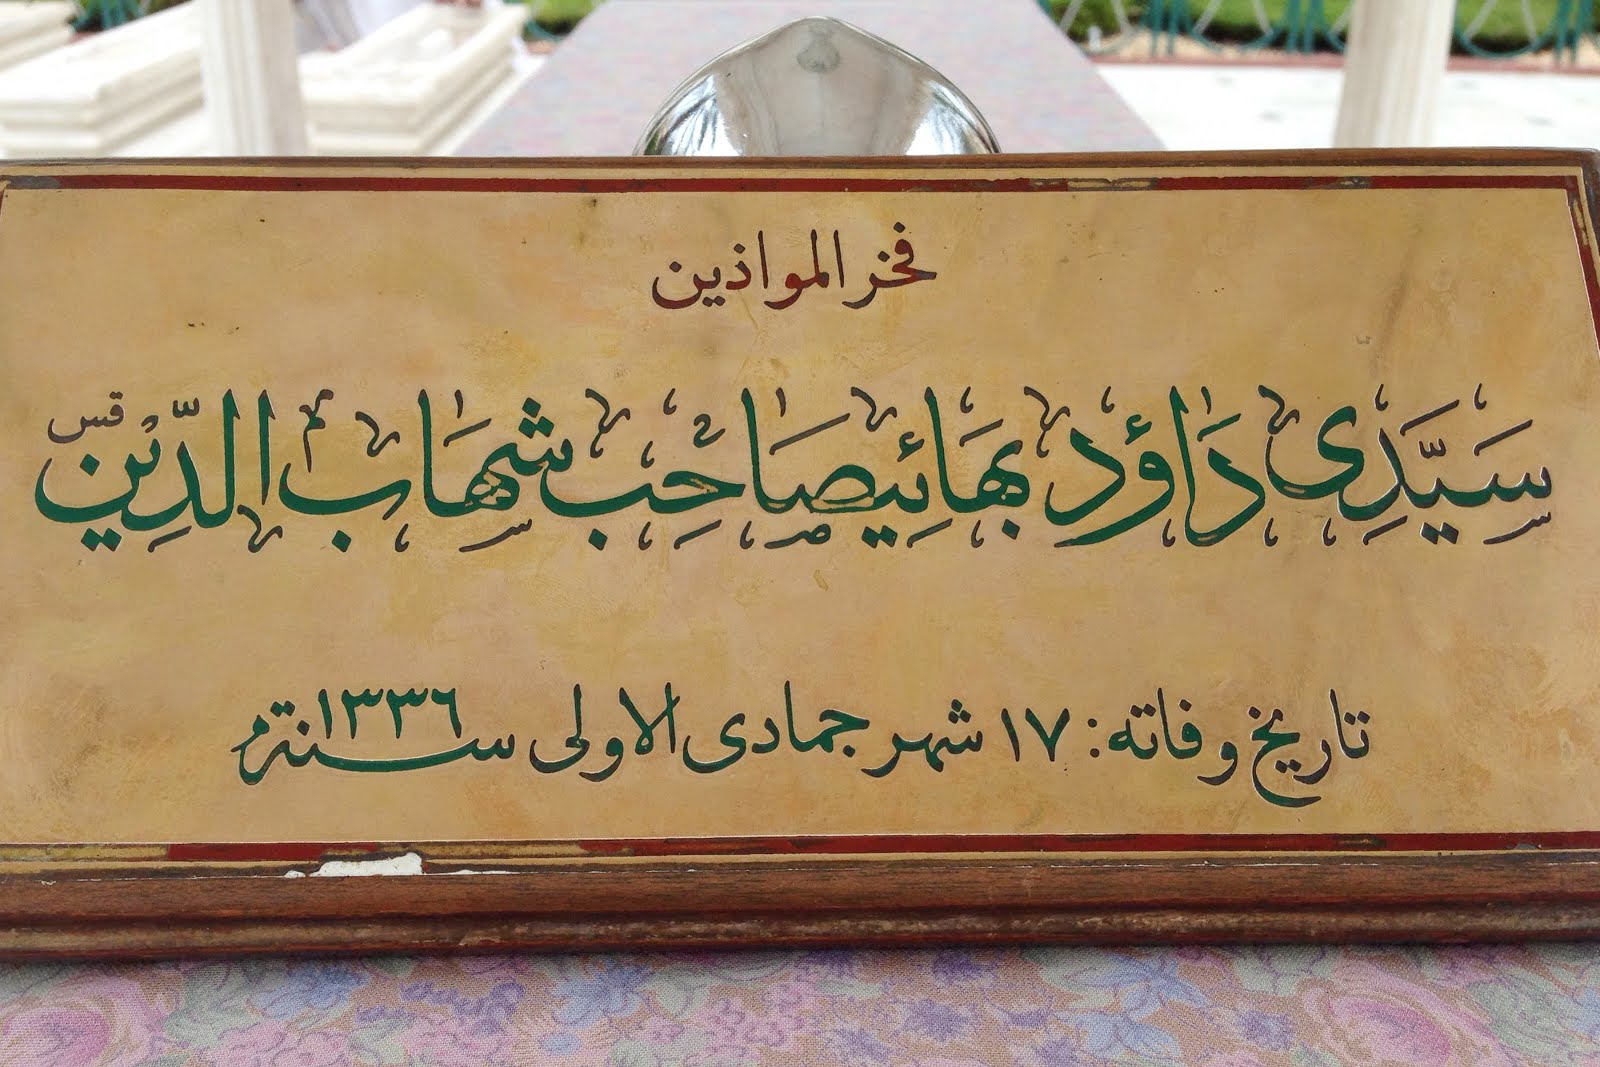 فخر الموٰاذين
سَيِّدِى دَاؤد بهَائِيصَاحِب شهَاب الدِّيْن قس
تاريخ وفاته: ١٧ شهر جمادى الاولى سنة ١٣٣٦